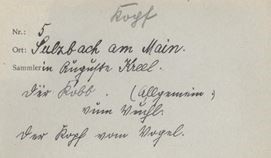 Kopf
Nr.: 5
Ort: Sulzbach am Main.
Sammlerin Auguste Kreel.
Der Kobb. (Allgemein)
vum Vuchl.
Der Kopf vom Vogel.